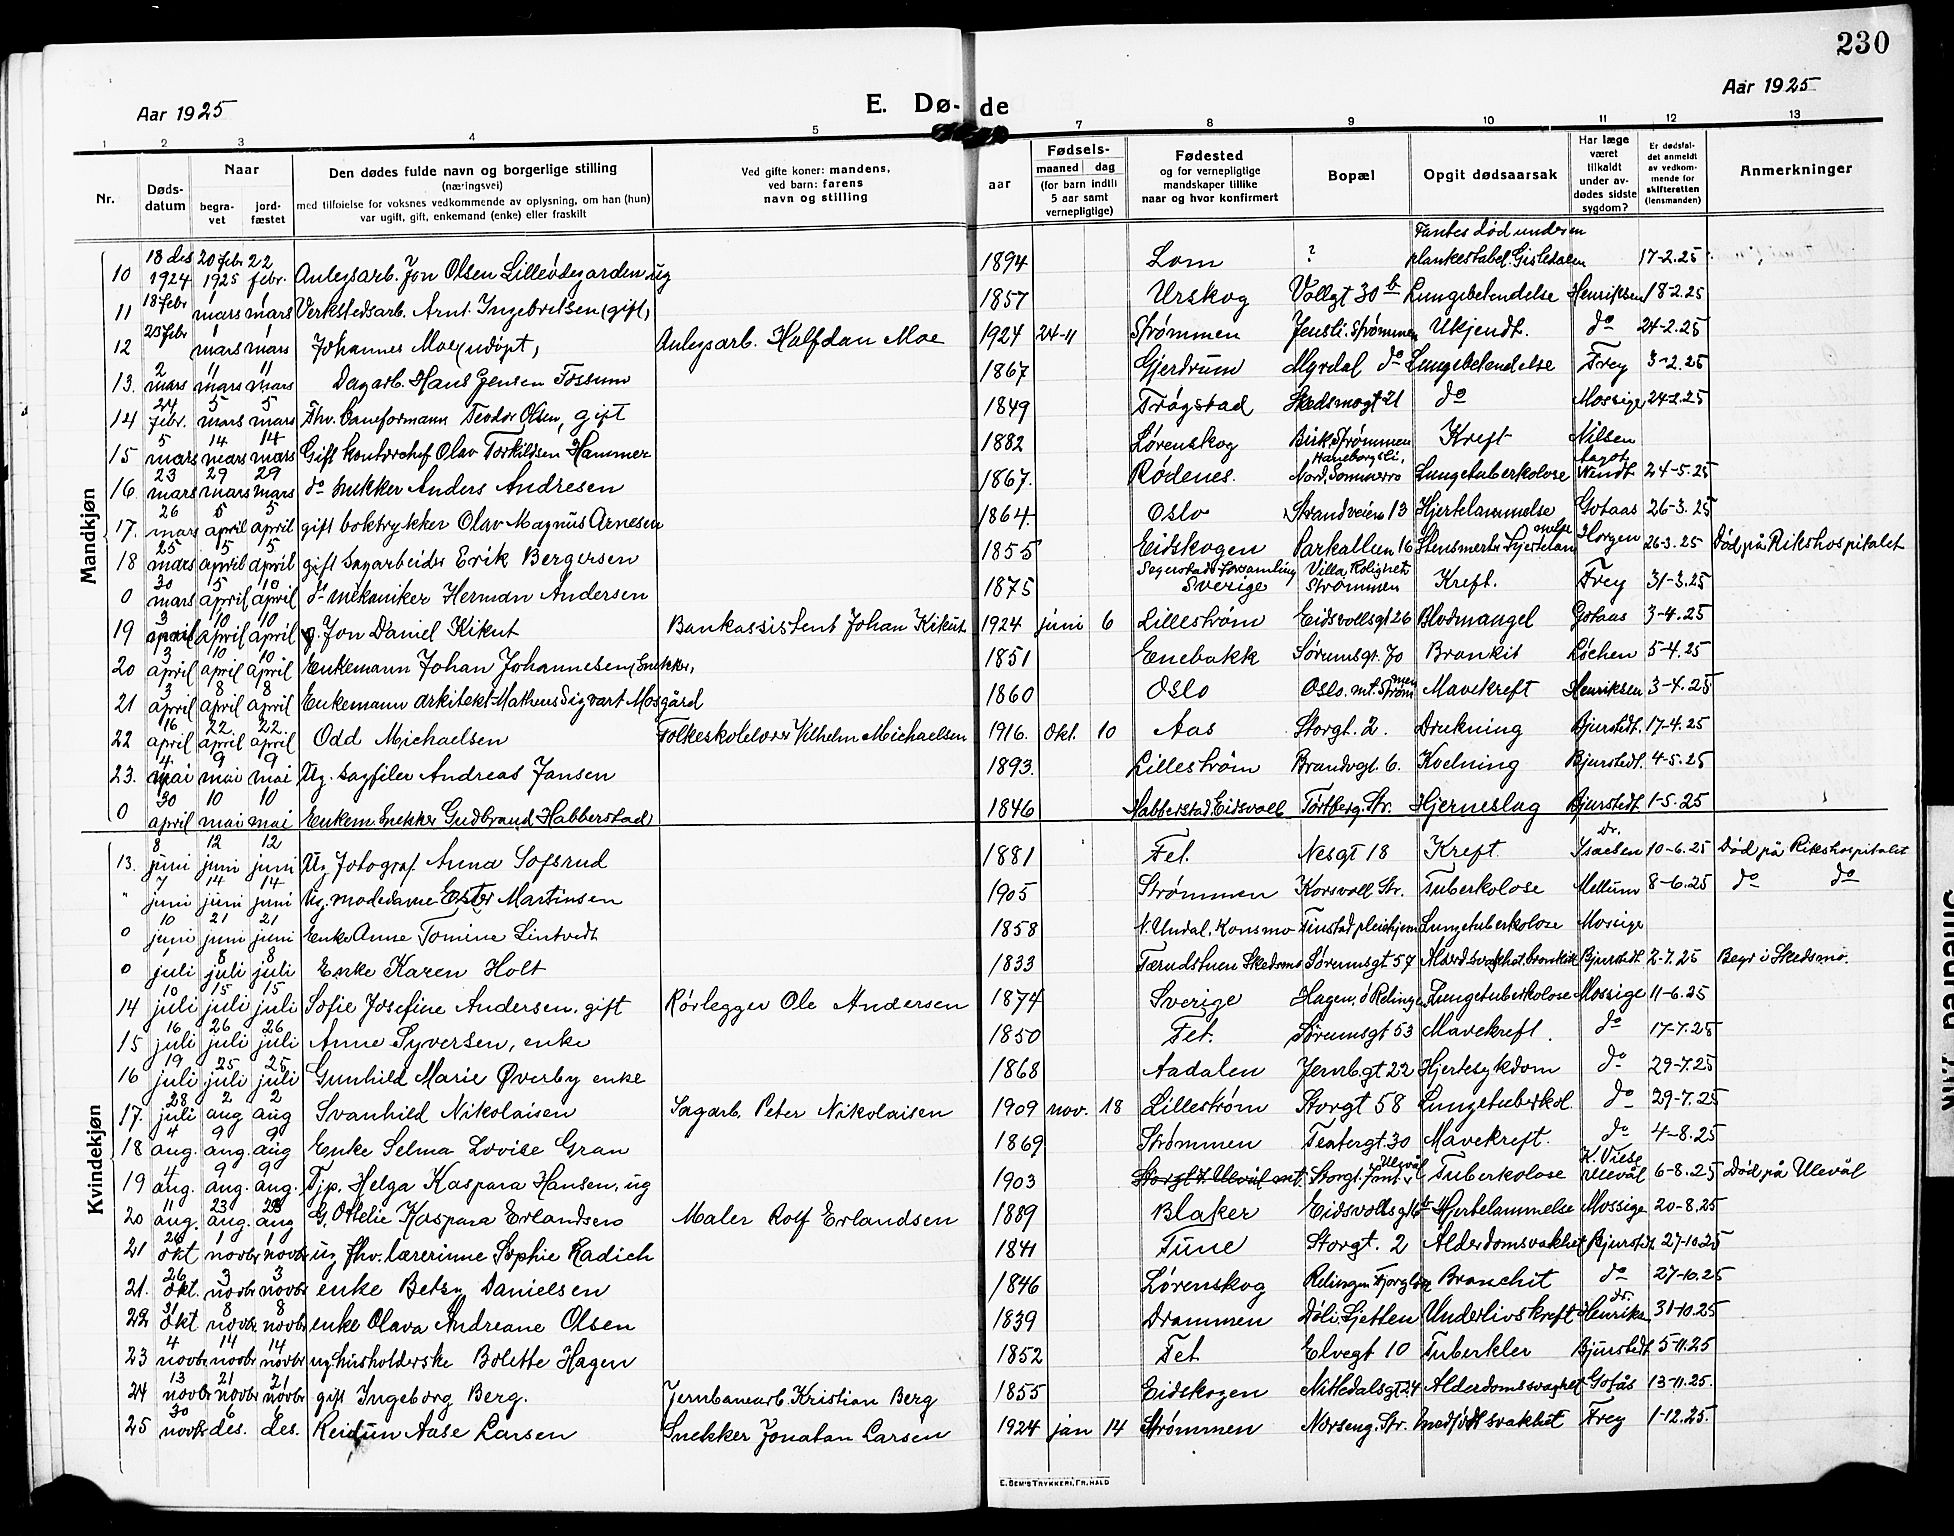 230
Aar 1925
E. Dø-
de
Aar 1925
1 2 3 4 5 7 8 9 10 11 12 13
Nr.
Døds-
datum
Naar
begra-
vet
jord-
fæstet
Den dødes fulde navn og borgerlige stilling
(næringsvei)
med tilføielse for voksnes vedkommende av oplysning, om han (hun)
var ugift, gift, enkemand (enke) eller fraskilt
Ved gifte koner: mandens,
ved barn: farens
navn og stilling
aar
Fødsels-
maaned dag
(for barn indtil
5 aar samt
vernepligtige)
Fødested
og for vernepligtige
mandskaper tillike
naar og hvor konfirmert
Bopæl
Opgit dødsaarsak
Har læge
været
tilkaldt
under av-
dødes sidste
sygdom?
Er dødsfal-
det anmeldt
av vedkom-
mende for
skifteretten
(lensmanden)
Anmerkninger
Mandkjøn
10 18 des 1924 20 febr 1925 22 febr. Anlegsarb. Jon Olsen Lilleødegarden, ug 1894 Lom ? Fantes død under en plankestabel. Gisledalen 17-2.25
11 18 febr 1 mars 1 mars Verkstedsarb. Arnt Ingebretsen (gift) 1857 Urskog Vollgt 30 b Lungebetendelse Henriksen 18-2.25
12 23 febr 1 mars 1 mars Johannes Moe, udøpt, Anlegsarb. Halfdan Moe 1924 24-11 Strømmen Jensli. Strømmen Ukjendt. do 24-2.25
13. 2 mars 11 mars 11 mars Dagarb. Hans Jensen Fossum 1867 Gjerdrum Myrdal do Lungebetendelse Frey 3-2.25
14 24 febr. 5 mars 5 mars Fhv. baneformann Teodor Olsen, gift 1849 Trøgstad Skedsmogt 21 do Mossige 24-2.25
15 5 mars 14 mars 14 mars Gift kontorchef Olav Torkildsen Hammer 1882 Lørenskog Birk, Strømmen Kreft Nilsen
16. 23 mars 29 mars 29 mars do snekker Anders Andresen 1867. Rødenes. Haneborgsli, Nord. Sommerro Lungetuberkolose Aagot Wendt. 24-5.25
17. 26 mars 5 april 5 april gift boktrykker Olav Magnus Arnesen 1864. Oslo Strandveien 13 Hjertelammelse Gotaas 26-3.25
18 25 mars 5 april 5 april gift sagarbeider Erik Bergersen 1855 Eidskogen Parkalleen 16 Stensmerter Hjertelammelse Horgen 26-3.25 Død på Rikshospitalet
0 30 mars 5 april 10 april do mekaniker Herman Andersen 1875 Segerstads forsamling Sverige Villa Rolighet Strømmen Kreft. Frey 31-3.25
19 3 april 10 april 10 april g. Jon Daniel Kikut Bankassistent Johan Kikut 1924 juni 6 Lillestrøm Eidsvollsgt 26 Blodmangel Gotaas 3-4.25
20 3 april 10 april 10 april Enkemann Johan Johannesen, Snekker, 1851 Enebakk Sørumsgt. 70 Bronkit Løchen 5-4.25
21 3 april 8 april 8 april Enkemann arkitekt Mathens Sigvart Mosgård 1860 Oslo Oslo. mt. Strømmen Mavekreft Henriksen 3-4.25
22 16 april 22 april 22 april Odd Michaelsen Folkeskolelærer Vilhelm Michaelsen 1916. Okt. 10 Aas Storgt. 2. Drukning Bjurstedt. 17-4.25
23. 4 mai 9 mai 9 mai Ug. sagfiler Andreas Jansen 1893. Lillestrøm Brandvgt. 6. Kvelning Bjurstedt. 4-5.25
0 30 april 10 mai 10 mai Enkem. Snekker Gudbrand Habberstad 1846 Habberstad, Eidsvoll Tortberg. Str. Hjerneslag Bjurstedt 1-5.25
Kvindekjøn
13. 8 juni 12 juni 12 juni Ug. fotograf. Anna Sofsrud 1881 Fet. Nesgt 18 Kreft. Dr. Isaelsen 10-6.25 Død på Rikshospitalet
" 7 juni 14 juni 14 juni Ug. modedame Ester Martinsen 1905 Strømmen Korsvoll Str. Tuberkolose Mellum 8-6.25 do do
0 10 juni 21 juni 21 juni Enke Anne Tomine Lintvedt 1858 N. Undal, Konsmo Finstad pleiehjem Lungetuberkolose Mossige
0 1 juli 8 juli 8 juli Enke Karen Holt 1833 Færudstuen Skedsmo Sørumsgt 57 Alderdsvakhet, bronkitt Bjurstedt. 2-7.25 Begr i Skedsmo.
14 10 juli 15 juli 15 juli Sofie Josefine Andersen, gift Rørlegger Ole Andersen 1874 Sverige Hagen, ø Relingen Lungetuberkolose Mossige 11-6.25
15 16 juli 26 juli 26 juli Anne Syversen, enke 1850 Fet. Sørumsgt 53 Mavekreft. do 17-7.25
16 19 juli 25 juli 25 juli Gunhild Marie Øverby enke 1868 Aadalen Jernb.gt 22 Hjertesykdom do 29-7.25
17. 28 juli 2 aug 2 aug Svanhild Nikolaisen Sagarb. Peter Nikolaisen 1909 nov. 18 Lillestrøm Storgt 58 Lungetuberkol. do 29-7.25
18 4 aug. 9 aug. 9 aug Enke Selma Lovise Gran 1869 Strømmen Teatergt. 30 Mavekreft. do 4-8.25
19 4 aug. 9 aug. 9 aug. Tjp. Helga Kaspara Hansen, ug 1903 Storgt. 7. Ullevål mt. Storgt. 7 mt. Ulevål Tuberkolose K. Viese Ullevål 6-8.25 Død på Ulevål
20 11 aug. 23 aug. 23 aug G. Othelie Kaspara Erlandsen Maler Rolf Erlandsen 1889 Blaker Eidsvollsgt 16 b Hjertelammelse Mossige 20-8.25
21 26 okt 1 novbr 1 novbr ug fhv. lærerinne Sophie Radich 1841 Tune Storgt. 2 Alderdomsvakhet Bjurstedt 27-10.25
21. 26 okt. 3 novbr 3 novbr enke Betsy Danielsen 1846 Lørenskog Relingen, Fjorgløtt Bronchit do 27-10.25
22 31 okt 8 novbr 8 novbr enke Olava Andreane Olsen 1839 Drammen Døli, Sjetten Underlivskreft dr. Henriksen 31-10.25
23 4 novbr 14 novbr 14 novbr ug husholderske Bolette Hagen 1852 Fet Elvegt 10 Tuberkler Bjurstedt 5-11.25
24 13 novbr 21 novbr 21 novbr gift Ingeborg Berg. Jernbanearb. Kristian Berg 1855 Eidskogen Nittedalsgt 24 Alderdomssvaghet Gotås 13-11.25.
25 30 novbr 6 des. 6 des. Reidun Aase Larsen Snekker Jonatan Larsen 1924 jan 14 Strømmen Norseng. Str. medfødt svakhet Frey 1-12.25.
E. Sem's Trykkeri, Fr.hald